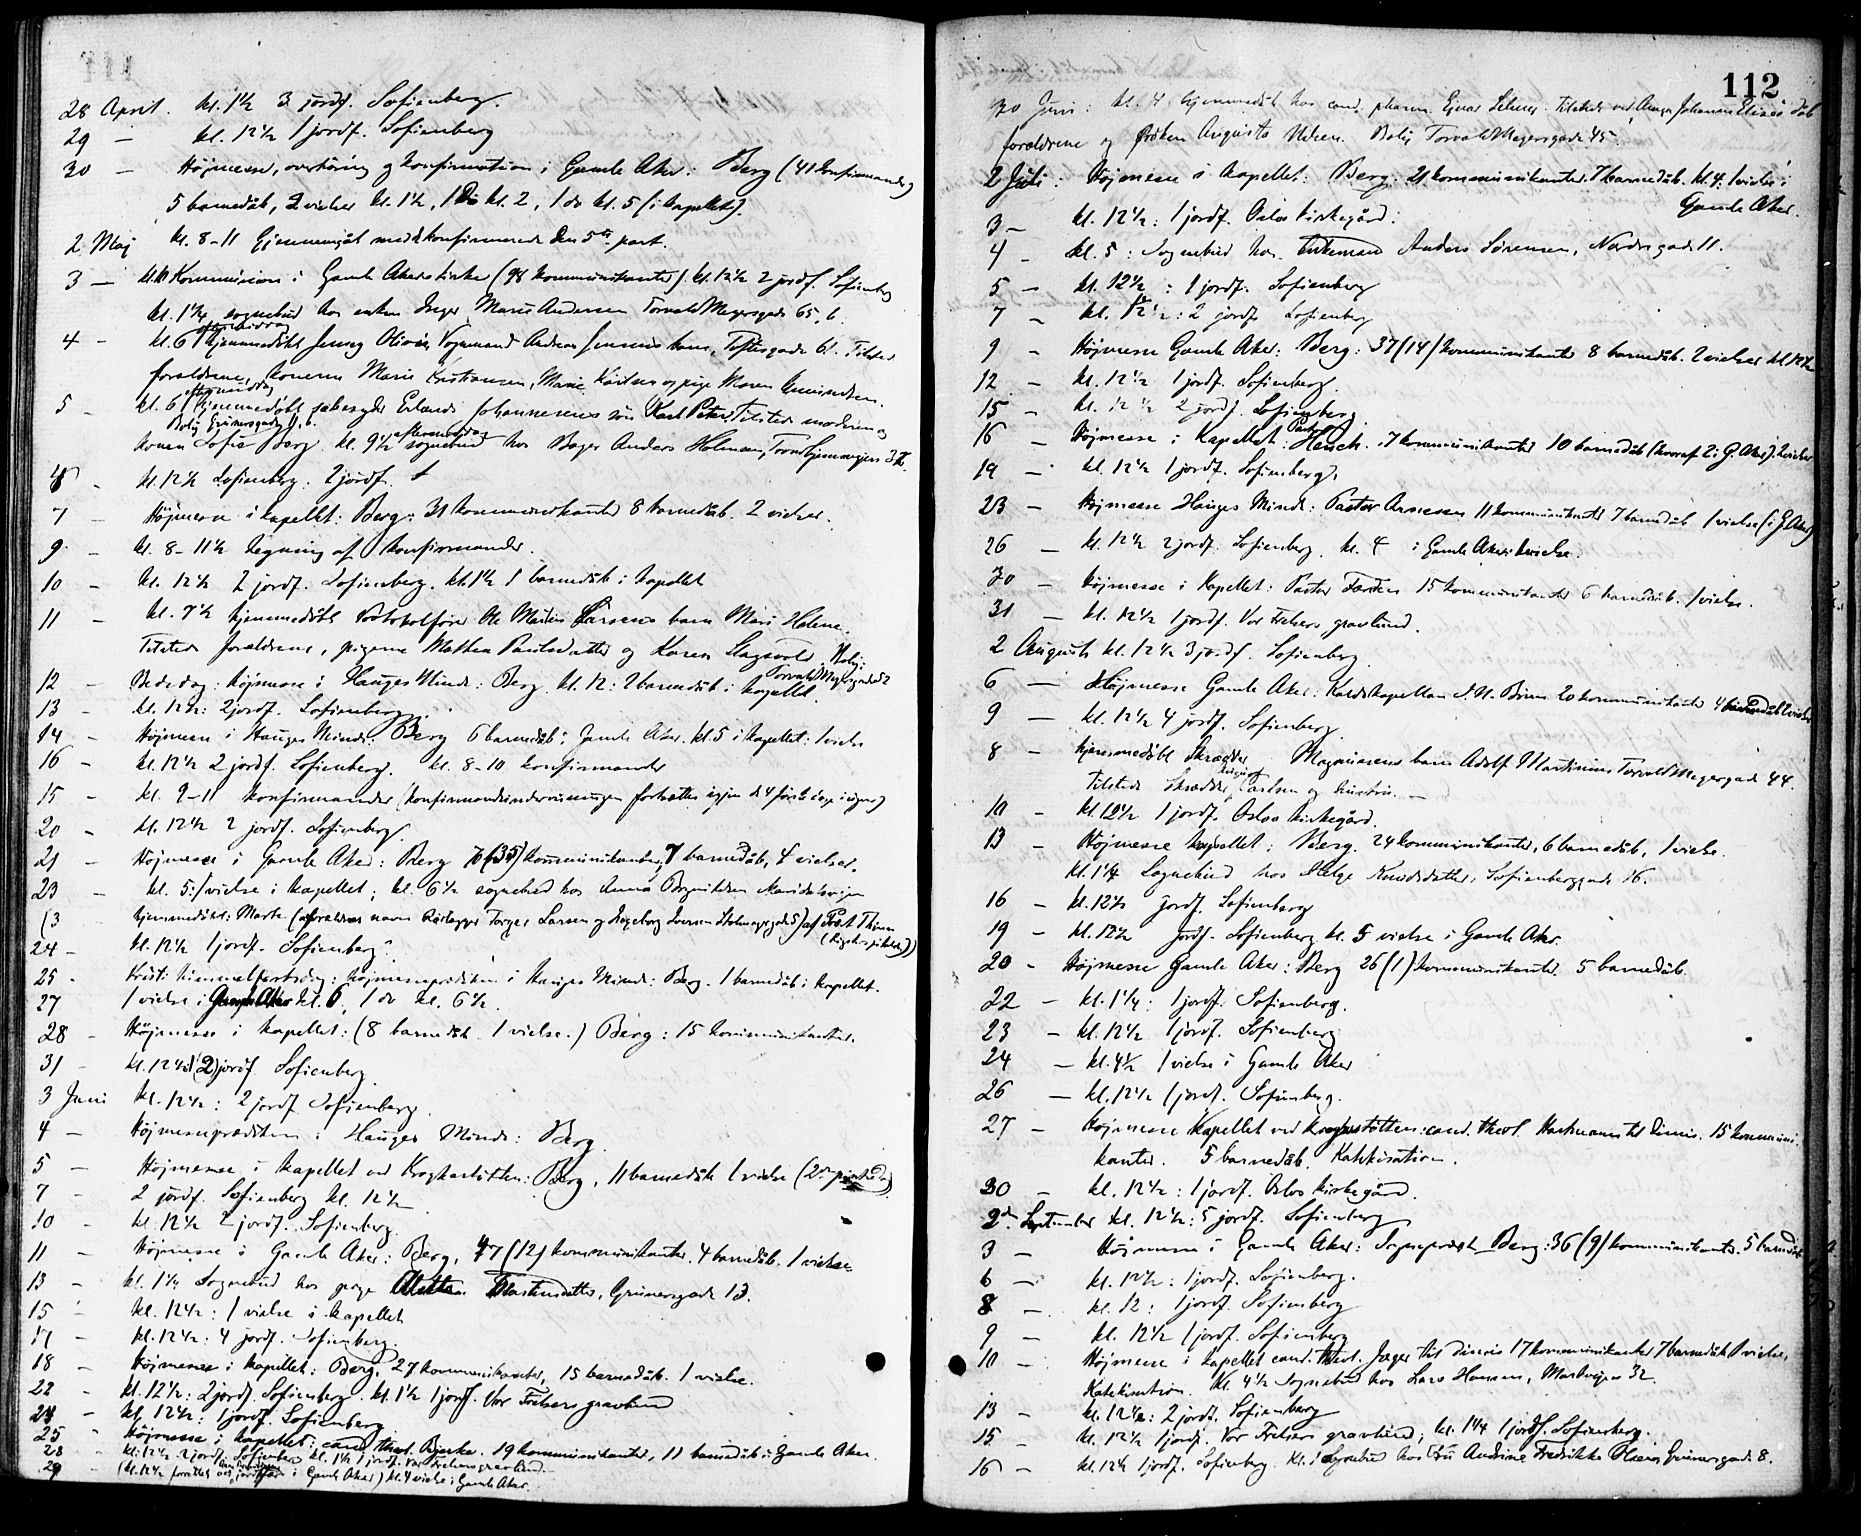 28 April. kl. 1½ 3 jordf. Sofienberg.
29 — kl. 12½ 1 jordf. Sofienberg
30 — Højmesse, overhøring og konfirmation i Gamle Aker: Berg (41 konfirmander)
5 barnedåb, 2 vielser kl. 1½, 1 do kl. 2, 1 do kl. 5 (i kapellet).
2 Maj kl. 8–11 Gjennemgåt med konfirmerede den 5te part.
3 — Kommunion i Gamle Akers kirke (98 kommunikanter). kl. 12½ 2 jordf. Sofienberg
kl. 1¾ sognebud hos enken Inger Marie Andersen Torvald Meyersgade 65, b.
4 – kl. 6 eftermiddag hjemmedøbt Jenny Olivia, Andreas Jensens barn, Toftesgade 61. Tilstede
forældrene, konerne Marie Kristiansen, Marie Karlsen og pige Maren
5 – kl. 6 eftermiddag hjemmedøbt Johannesens søn Karl Peter. Tilstede moderen og
Bolig Grünersgade
konen Sofie Berg. kl. 9½ eftermiddag sognebud hos Bager Anders Holmsen,
– kl. 12½ Sofienberg. 2 jordf.
7 – Højmesse i kapellet: Berg: 31 kommunikanter 8 barnedåb. 2 vielser.
9 – kl. 8–11½ tegning af konfirmander.
10 – kl. 12½ 2 jordf. Sofienberg. kl. 1½ 1 barnedåb i kapellet
11 – kl. 7½ hjemmedøbt Protokolfører Ole Martin Larsens barn Mari Helene.
Tilstede forældrene, pigerne Mathea Paulsdatter og Karen Slagsvold. Bolig:
Torvald Meyersgade 52
12 – Bededag: Højmesse i Hauges Minde: Berg. kl. 12: 2 barnedåb i kapellet.
13 – kl. 12½: 2 jordf. Sofienberg.
14 – Højmesse i Hauges Minde: Berg 6 barnedåb i Gamle Aker. kl. 5 i kapellet: 1 vielse
16 – kl. 12½ 2 jordf. Sofienberg. kl. 8–10 konfirmander
15 – kl. 9–11 konfirmander (konfirmandundervisningen fortsættes de 4 første dage i ugen)
20 – kl. 12½ 2 jordf. Sofienberg.
21 – Højmesse i Gamle Aker: Berg 70 (35) kommunikanter, 7 barnedåb, 4 vielser.
23 – kl. 5: 1 vielse i kapellet; kl. 6½ sognebud hos Anna Maridalsvejen
(3 hjemmedøbt: Marte (forældrenes navn Torger Larsen og Ingeborg Iversen
24 – kl. 12½ 1 jordf. Sofienberg.
25 – Kristi himmelfartsdag: højmesseprædiken i Hauges Minde: Berg. 1 barnedåb i kapellet.
27 1 vielse i Gamle Aker kl. 6, 1 do kl. 6½.
28 – Højmesse i kapellet: (8 barnedåb 1 vielse.) Berg: 15 kommunikanter.
31 – kl. 12½ (2) jordf Sofienberg
3 Juni kl. 12½: 2 jordf Sofienberg.
4 — Højmesseprædiken i Hauges Minde: Berg.
5 — Højmesse i kapellet ved Krogstøtten: Berg, 11 barnedåb 1 vielse (2den pinsedag)
7 – 2 jordf. Sofienberg kl. 12½
10 – kl. 12½ 2 jordf. Sofienberg.
11 – Højmesse i Gamle Aker: Berg, 47 (12) kommunikanter. 4 barnedåb. 1 vielse
13 – kl. 1¼ Sognebud hos pige Martinsdatter, Grünersgade 13.
15 – kl. 12½: 1 vielse i kapellet
17 – kl. 12½: 4 jordf. Sofienberg.
18 – Højmesse i kapellet: Berg, 27 kommunikanter, 15 barnedåb. 1 vielse.
22 – kl. 12½: 2 jordf. Sofienberg. kl. 1½ 1 jordf. Vor Frelsers gravlund
24 – kl. 12½: 1 jordf. Sofienberg
25 – Højmesse i kapellet: cand. theol. Bjerke. 19 kommunikanter, 11 barnedåb i Gamle Aker.
28 – kl. 12½ 2 jordf. Sofienberg kl. 1½ 1 jordf. Vor Frelsers gravlund.
29 – i Gamle Aker) kl. 4 vielse i Gamle Aker.
112
30 Juni: kl. 4 hjemmedåb hos cand. pharm. Ejnar Tilstede ved Johannes dåb
forældrene og frøken Augusta Nilsen. Bolig Torvald Meyersgade 45.
2 Juli: Højmesse i kapellet: Berg: 21 kommunikanter. 7 barnedåb. kl. 4. 1 vielse i
Gamle Aker.
3 – kl. 12½: 1 jordf. Oslos kirkegård.
4 – kl. 5: Sognebud hos Anders Sørensen, Nordregade 11.
5 – kl. 12½: 1 jordf. Sofienberg
7 – kl. 12½: 2 jordf Sofienberg
9 – Højmesse Gamle Aker: Berg: 37 (14) kommunikanter 8 barnedåb. 2 vielser kl. 12½
12 – kl. 12½ 1 jordf. Sofienberg.
15 – kl. 12½ 2 jordf. Sofienberg
16 – Højmesse i Kapellet: Pastor Heuch. 7 kommunikanter 10 barnedåb (hvoraf 2 i G. Aker). 2 vielser
19 – kl. 12½ 1 jordf. Sofienberg.
23 – Højmesse Hauges Minde: Pastor Arnesen 11 kommunikanter 7 barnedåb 1 vielse (i G. Aker)
26 – kl. 12½ 2 jordf. Sofienberg. kl. 4 i Gamle Aker: vielse.
30 – Højmesse i Kapellet: Pastor Færden 15 kommunikanter 6 barnedåb. 1 vielse.
31 – kl. 12½ 1 jordf. Vor Frelsers gravlund.
2 August kl. 12½ 3 jordf. Sofienberg
6 — Højmesse Gamle Aker: 20 kommunikanter 4 barnedåb 2 vielser
9 — kl. 12½ 4 jordf. Sofienberg.
8 – hjemmedøbt Skrædder Magnussens barn Adolf Martinius Torvald Meyersgade 44.
Tilstede Skrædder Carlsen og hustru.
10 – kl. 12½ 1 jordf. Oslos kirkegård.
13 – Højmesse kapellet: Berg. 24 kommunikanter, 6 barnedåb, 1 vielse.
kl. 1¼ Sognebud hos Helge Knudsdatter, Sofienberggade 16.
16 – kl. 12½ jordf. Sofienberg
19 – kl. 12½ jordf. Sofienberg. kl. 5 vielse i Gamle Aker.
20 – Højmesse Gamle Aker: Berg 26 (1) kommunikanter 5 barnedåb.
22 – kl. 1¼: 1 jordf. Sofienberg.
23 – kl. 12½ 1 jordf. Sofienberg
24 – kl. 4½ 1 vielse i Gamle Aker
26 – kl. 12½ 1 jordf. Sofienberg.
27 – Højmesse Kapellet ved Krogstøtten: cand. theol. Hartmann til Dimis. 15 kommuni-
kanter. 5 barnedåb. Katekisation.
30 – kl. 12½: 1 jordf. Oslos kirkegård.
2den September kl. 12½: 5 jordf. Sofienberg
3 – Højmesse i Gamle Aker: Sognepræst Berg: 36 (9) kommunikanter. 5 barnedåb
6 – kl. 12½: 1 jordf. Sofienberg.
8 – kl. 12: 1 jordf. Sofienberg
9 – kl. 12½ 1 jordf. Sofienberg
10 – Højmesse i kapellet cand. theol. Jæger til dimis 17 kommunikanter 7 barnedåb 1 vielse,
Katekisation. kl. 4½ Sognebud hos Lars Hansen, Markvejen 32.
13 – kl. 12½: 2 jordf. Sofienberg
15 – kl. 12½ 1 jordf. Vor Frelsers gravlund; kl. 1¼ 1 jordf. Sofienberg.
16 – kl. 12½ 1 jordf. Sofienberg. kl. 1 Sognebud hos Fru Andrine Fredrikke Grünersgade 8.